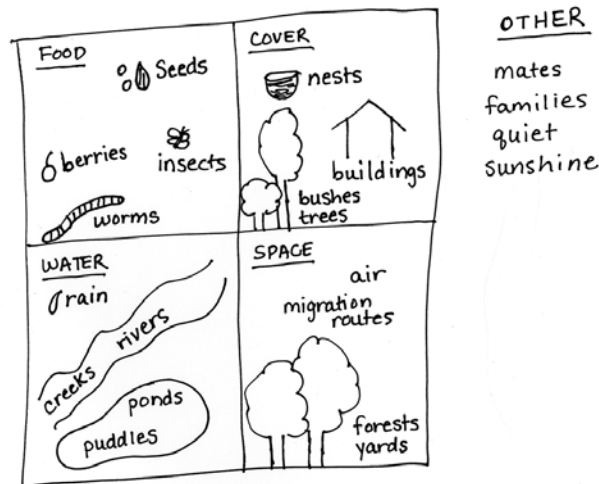 FOOD
Seeds
berries
insects
worms
COVER
nests
buildings
bushes
trees
WATER
rain
rivers
creeks
ponds
puddles
SPACE
air
migration
routes
forests
yards
OTHER
mates
families
quiet
sunshine